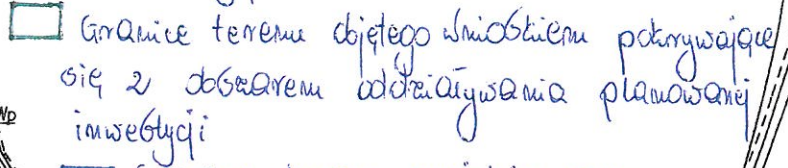 Granice terenu objętego wnioskiem pokrywające
się z obszarem oddziaływania planowanej
inwestycji